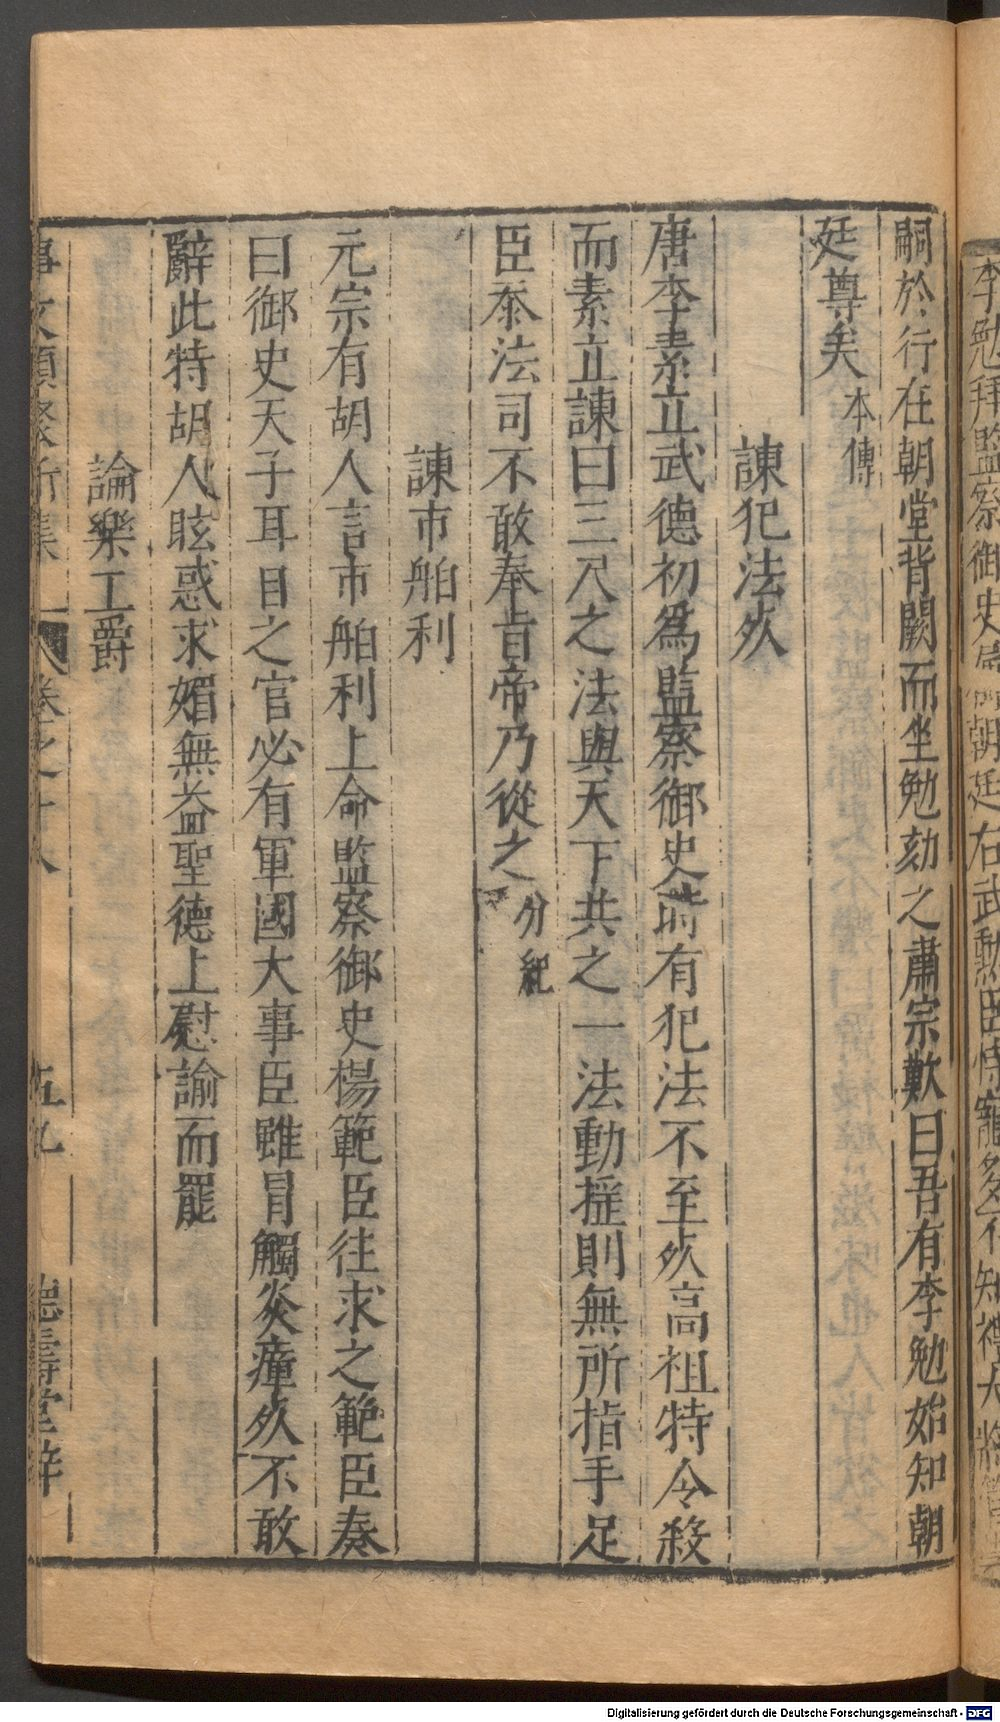 李勉拜監察御史屬朝廷右武勳臣恃寵多不知禮大將管
嗣於行在朝堂背闕而坐勉劾之肅宗歎曰吾有李勉始知朝
廷尊矣 本傳
諫犯法死
唐李素立武德初為監察御史時有犯法不至死高祖特令殺
而素立諫曰三尺之法與天下共之一法動搖則無所指手足
臣忝法司不敢奉旨帝乃從之 分紀
諫市舶利
元宗有胡人言市舶利上命監察御史楊範臣往求之範臣奏
曰御史天子耳目之官必有軍國大事臣雖冒觸炎瘴死不敢
辭此特胡人眩惑求媚無益聖德上慰諭而罷
論樂工爵
事文類聚新集 卷之十八 五九 德壽堂梓
Digitalisierung gefördert durch die Deutsche Forschungsgemeinschaft - DFG